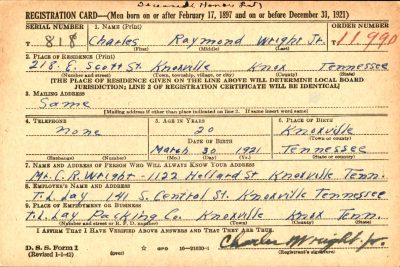 REGISTRATION CARD—(Men born on or after February 17, 1897 and on or before December 31, 1921)
SERIAL NUMBER 1. NAME (Print) ORDER NUMBER
T 818 Charles Raymond Wright Jr. 11,990
(First) (Middle) (Last)
2. PLACE OF RESIDENCE (Print)
218 E. Scott St. Knoxville Knox Tennessee
(Number and street) (Town, township, village, or city) (County) (State)
[THE PLACE OF RESIDENCE GIVEN ON THE LINE ABOVE WILL DETERMINE LOCAL BOARD
JURISDICTION; LINE 2 OF REGISTRATION CERTIFICATE WILL BE IDENTICAL]
3. MAILING ADDRESS
Same
[Mailing address if other than place indicated on line 2. If same insert word same]
4. TELEPHONE 5. AGE IN YEARS 6. PLACE OF BIRTH
none 20 Knoxville
DATE OF BIRTH (Town or county)
March 30 1921 Tennessee
(Exchange) (Number) (Mo.) (Day) (Yr.) (State or country)
7. NAME AND ADDRESS OF PERSON WHO WILL ALWAYS KNOW YOUR ADDRESS
Mr. C.R. Wright - 1122 St Knoxville, Tenn.
8. EMPLOYER'S NAME AND ADDRESS
T.L. Lay 141 S. Central St. Knoxville Tennessee
9. PLACE OF EMPLOYMENT OR BUSINESS
T.L. Lay Packing Co. Knoxville Knox Tenn.
(Number and street or R. F. D. number) (Town) (County) (State)
I AFFIRM THAT I HAVE VERIFIED ABOVE ANSWERS AND THAT THEY ARE TRUE.
D. S. S. Form 1 GPO 16—21630-1 Charles Wright. Jr.
(Revised 1-1-42) (Registrant's signature)